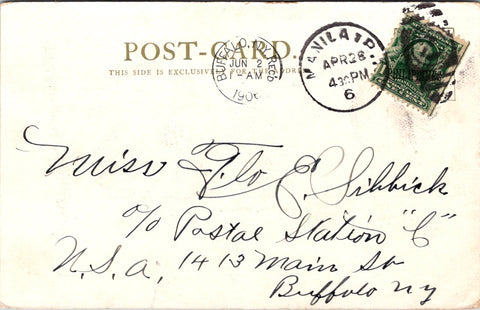 POST-CARD.
THIS SIDE IS EXCLUSIVELY FOR THE ADDRESS
BUFFALO, N.Y. REC'D.
JUN 2
1-AM
1906
MANILA, P.I.
APR 26
4:30 PM
6
PHILIPPINES
Miss Flo E. Sibbick
c/o Postal Station "C"
U.S.A. 1413 Main St
Buffalo NY